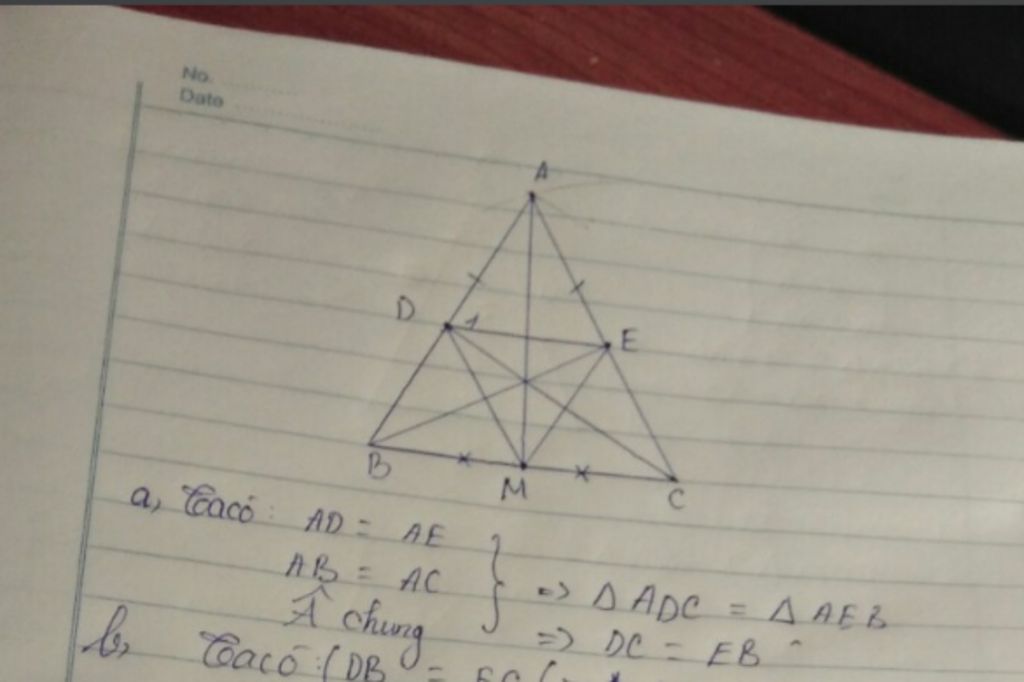 No.
Date
A
D 1
E
B
M
C
a, Ta có: AD = AE
AB = AC
Â chung
} => Δ ADC = Δ AEB
=> DC = EB
b, Ta có: ( DB = EC (